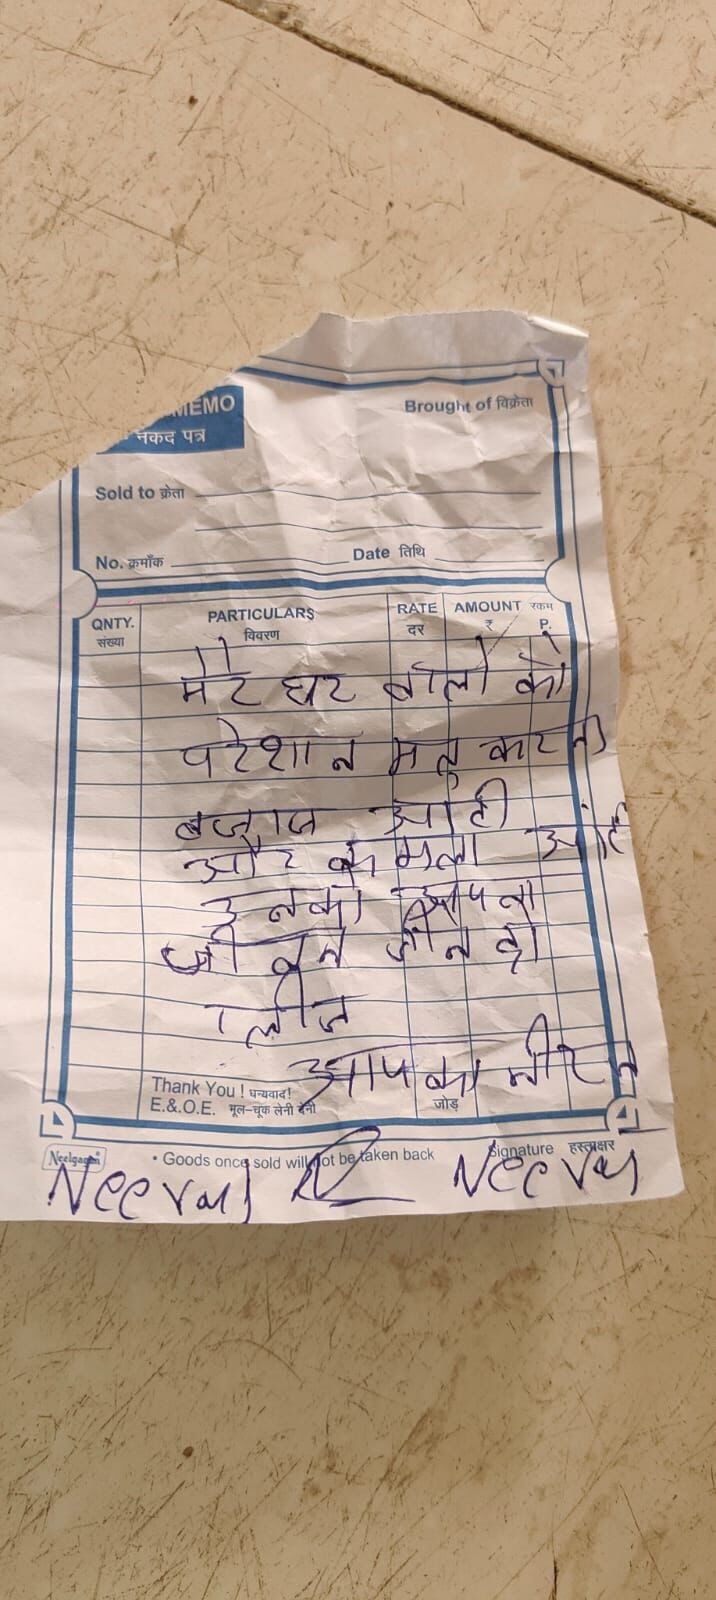 MEMO
नकद पत्र
Brought of विक्रेता
Sold to क्रेता
No. क्रमाँक Date तिथि
QNTY. संख्या PARTICULARS विवरण RATE दर AMOUNT रकम ₹ P.
मेरे घर वालो को
परेशान मत करना
बजाज आंटी
और कमला आंटी
उनको आपना
जीवन जीने दो
प्लीज
आपका नीरज
Thank You ! धन्यवाद!
E.&O.E. भूल-चूक लेनी देनी जोड़
Neelgagan • Goods once sold will not be taken back Signature हस्ताक्षर
Neeraj Neeraj